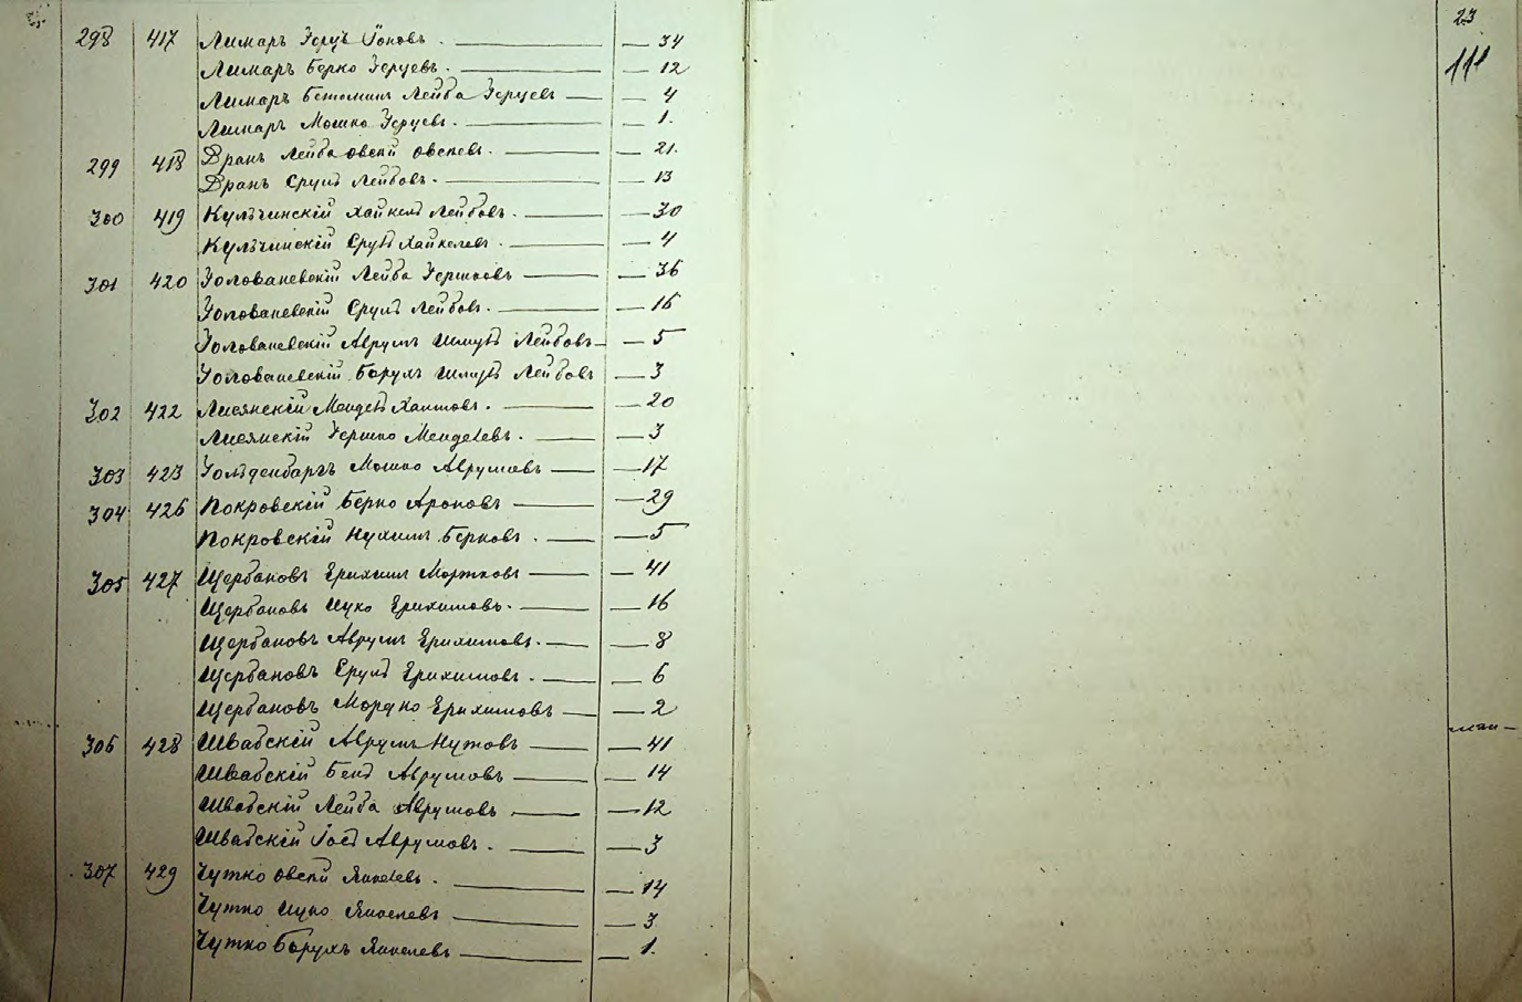 298 417 Лимаръ Герцъ Іоновъ. — 34
Лимаръ Берко Герцевъ. — 12
Лимаръ Лейба Герцевъ — 4
Лимаръ Мошко Герцевъ. — 1.
299 418 Дранъ Лейба Овсей Овсеевъ. — 21.
Дранъ Сруль Лейбовъ. — 13
300 419 Кульчинскій Хайкель Лейбовъ. — 30
Кульчинскій Сруль Хайкелевъ. — 4
301 420 Голованевскій Лейба Гершковъ — 36
Голованевскій Сруль Лейбовъ. — 16
Голованевскій Аврумъ Шмуль Лейбовъ — 5
Голованевскій Борухъ Шмуль Лейбовъ — 3
302 422 Лисянскій Мендель Хаимовъ. — 20
Лисянскій Гершко Менделевъ. — 3
303 423 Гольденбергъ Мошко Аврумовъ — 17
304 426 Покровскій Берко Ароновъ — 29
Покровскій Нухимъ Берковъ. — 5
305 427 Щербаковъ Ерихимъ Мортковъ — 41
Щербаковъ Ицко Ерихимовъ. — 16
Щербаковъ Аврумъ Ерихимовъ. — 8
Щербаковъ Сруль Ерихимовъ. — 6
Щербаковъ Мордко Ерихимовъ — 2
306 428 Швабскій Аврумъ Нутовъ — 41
Швабскій Аврумовъ — 14
Швабскій Лейба Аврумовъ — 12
Швабскій Іось Аврумовъ. — 3
307 429 Чутко Овсей Янкелевъ. — 14
Чутко Ицко Янкелевъ — 3
Чутко Борухъ Янкелевъ — 1.
23
111